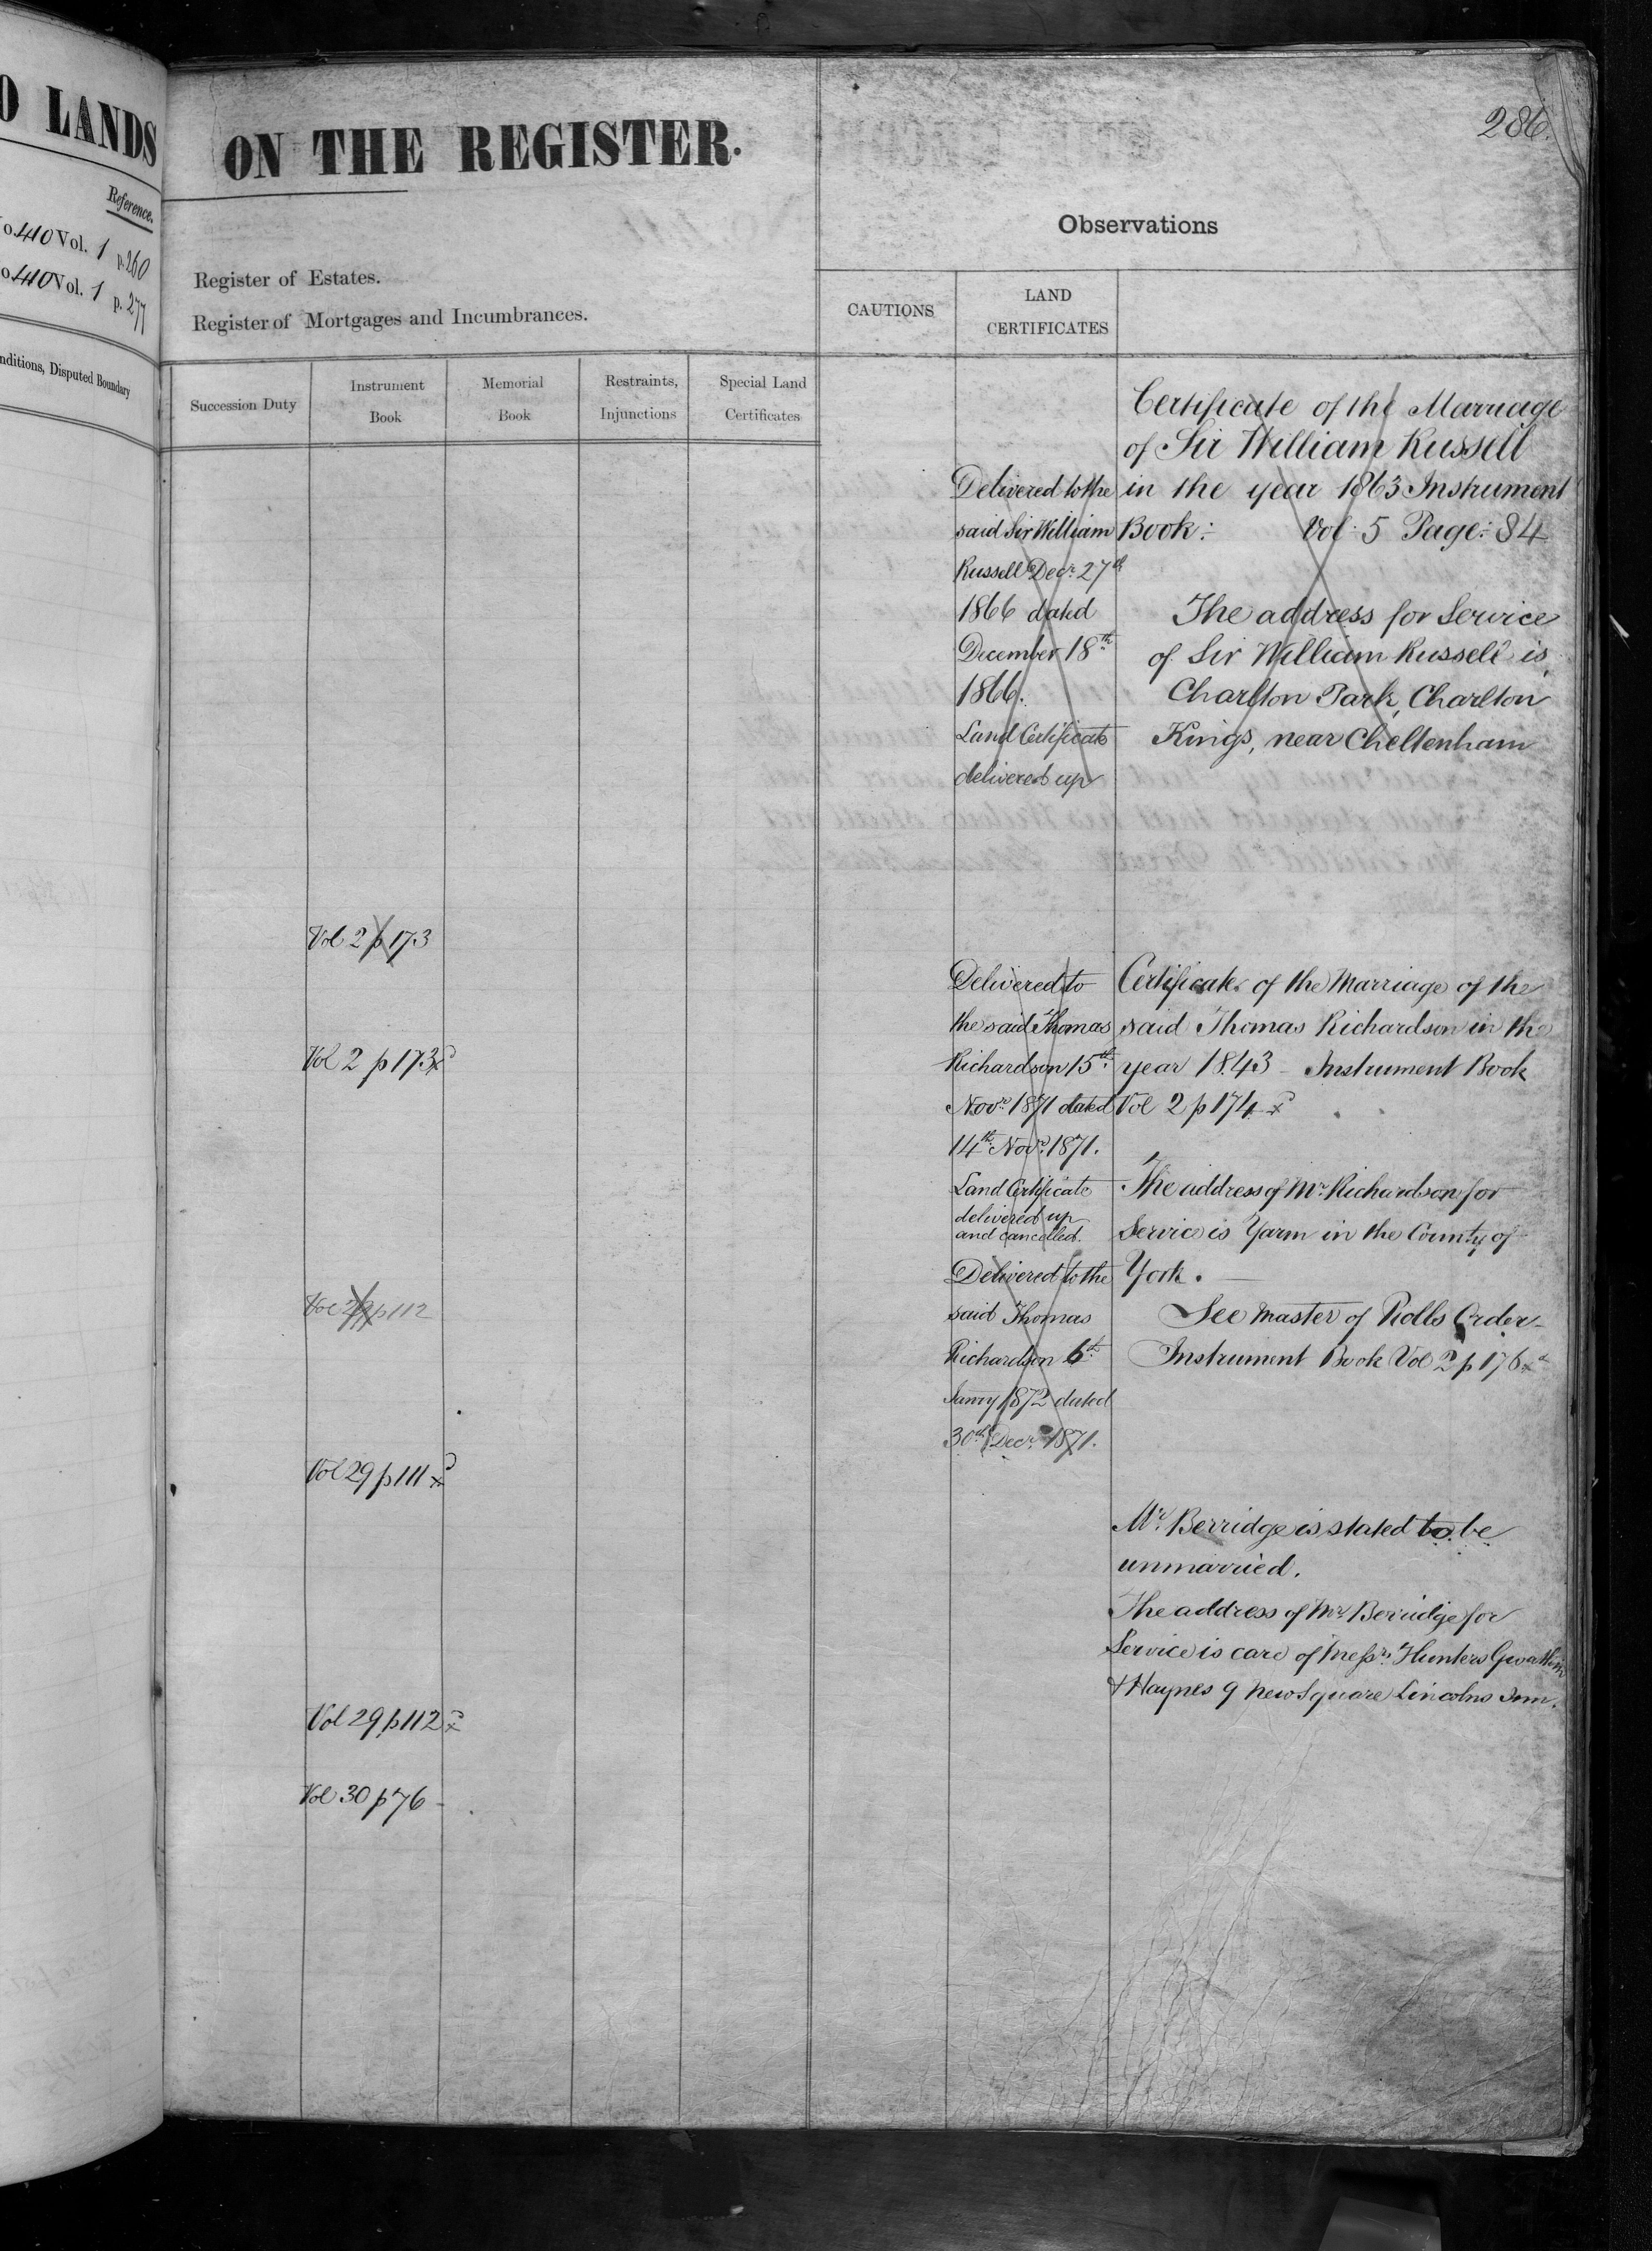 LANDS
Reference.
o. 410 Vol. 1 p. 260
o. 410 Vol. 1 p. 277
nditions, Disputed Boundary
ON THE REGISTER.
286.
Observations
Register of Estates.
Register of Mortgages and Incumbrances.
CAUTIONS
LAND
CERTIFICATES
Succession Duty
Instrument
Book
Memorial
Book
Restraints,
Injunctions
Special Land
Certificates
Vol 2 p 173
Vol 2 p 173
p 112
Vol 29 p 111
Vol 29 p 112
Vol 30 p 76
Delivered to the
said Sir William
Russell Decr. 27th
1866 dated
December 18th
1866.
Land Certificate
delivered up
Delivered to
the said Thomas
Richardson 15th
Novr. 1871 dated
14th Novr. 1871.
Land Certificate
delivered up
and cancelled.
Delivered to the
said Thomas
Richardson 6th
Janry 1872 dated
30th Decr. 1871.
Certificate of the Marriage
of Sir William Russell
in the year 1863 Instrument
Book: Vol: 5 Page: 84
The address for Service
of Sir William Russell is
Charlton Park, Charlton
Kings, near Cheltenham
Certificate of the Marriage of the
said Thomas Richardson in the
year 1843 - Instrument Book
Vol 2 p 174
The address of Mr. Richardson for
Service is Yarm in the County of
York.
See Master of Rolls Order -
Instrument Book Vol 2 p 176
Mr. Berridge is stated to be
unmarried.
The address of Mr. Berridge for
Service is care of Messrs. Hunters
& Haynes 9 New Square Lincolns Inn.